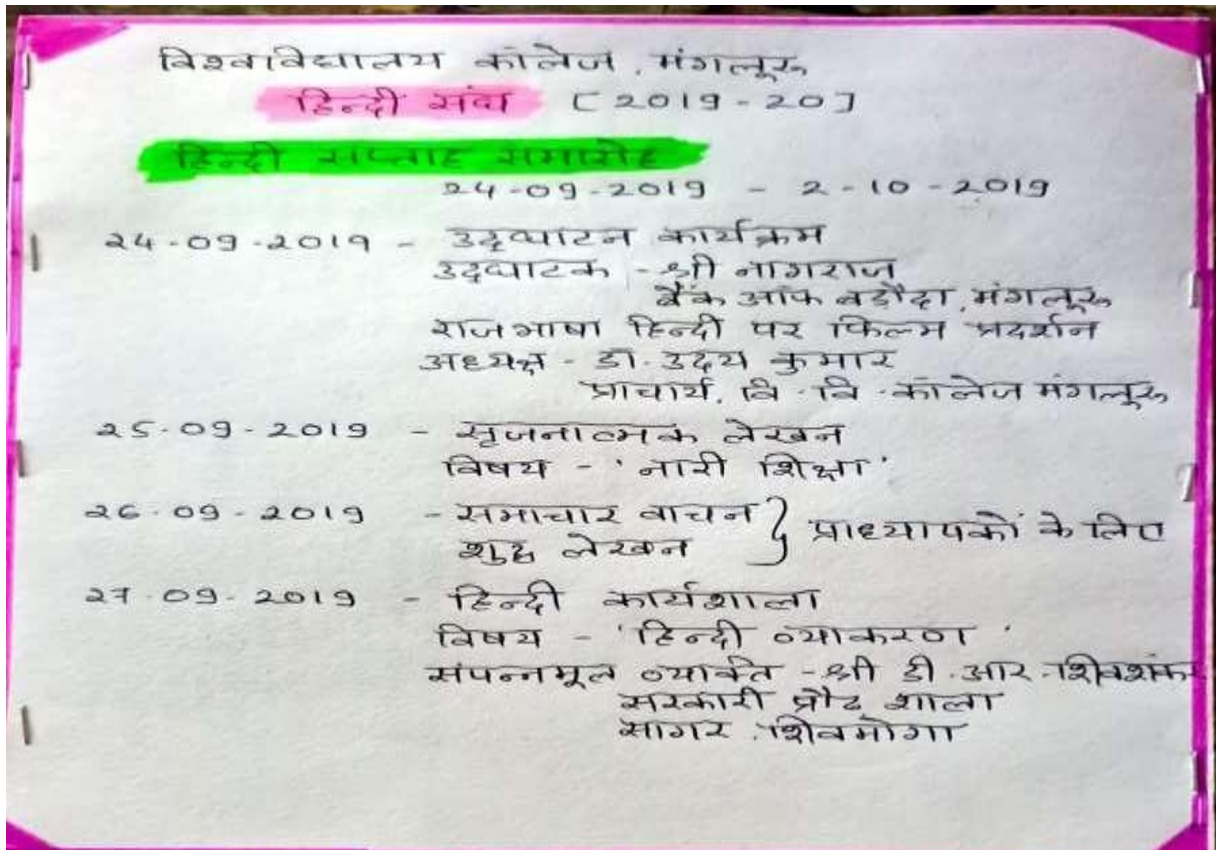 विश्वविद्यालय कॉलेज, मंगलूरु
हिन्दी संघ [2019-20]
हिन्दी सप्ताह समारोह
24-09-2019 - 2-10-2019
24-09-2019 - उद्घाटन कार्यक्रम
उद्घाटक - श्री नागराज
बैंक आफ बड़ौदा, मंगलूरु
राजभाषा हिन्दी पर फिल्म प्रदर्शन
अध्यक्ष - डॉ. उदय कुमार
प्राचार्य, वि.वि.कॉलेज मंगलूरु
25-09-2019 - सृजनात्मक लेखन
विषय - 'नारी शिक्षा'
26-09-2019 - समाचार वाचन } प्राध्यापकों के लिए
शुद्ध लेखन
27-09-2019 - हिन्दी कार्यशाला
विषय - 'हिन्दी व्याकरण'
संपन्नमूल व्यक्ति - श्री डी.आर.शिवशंकर
सरकारी प्रौढ शाला
सागर, शिवमोगा